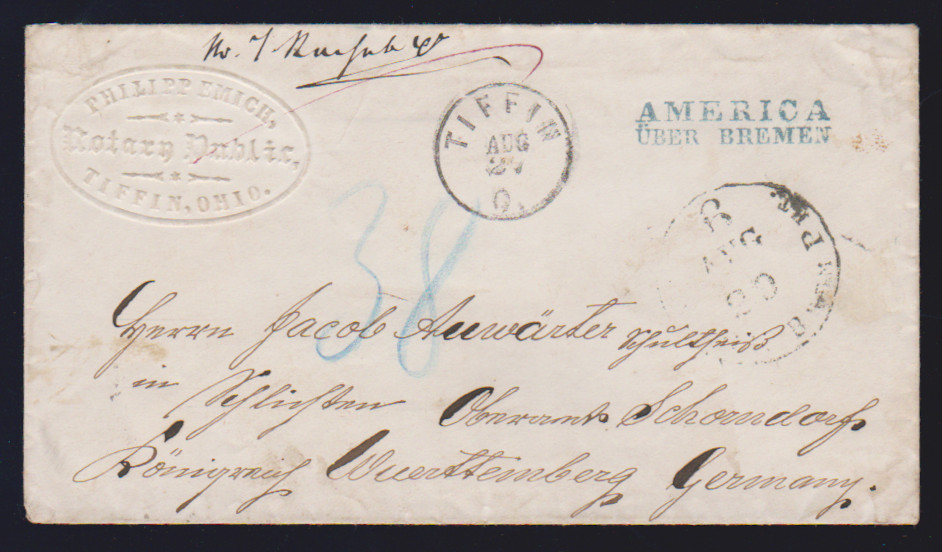 PHILIPP EMICH,
Notary Public,
TIFFIN, OHIO.
TIFFIN
AUG
27
O.
AMERICA
ÜBER BREMEN
AUG
PKT.
38
Herrn Jacob Anwärter Schultheiß
in Schlichten Oberamt Schorndorf
Königreich Wuerttemberg Germany.